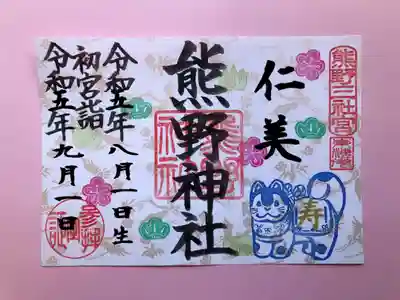 熊野三社宮
仁美
熊野神社
令和五年八月一日生
初宮詣
令和五年九月一日
寿